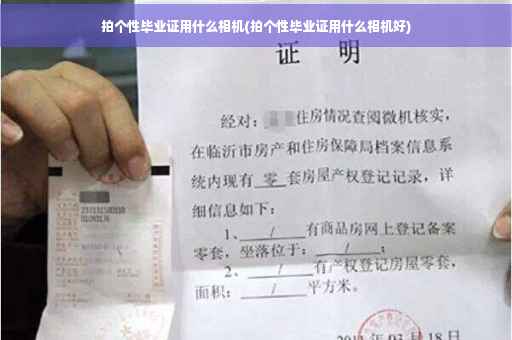 拍个性毕业证用什么相机(拍个性毕业证用什么相机好)
证 明
经对: 住房情况查阅微机核实,
在临沂市房产和住房保障局档案信息系
统内现有 零 套房屋产权登记记录,详
细信息如下:
1、 / 有商品房网上登记备案
零套,坐落位于: / ;
2、 / 有产权登记房屋零套,
面积: / 平方米。
月18日